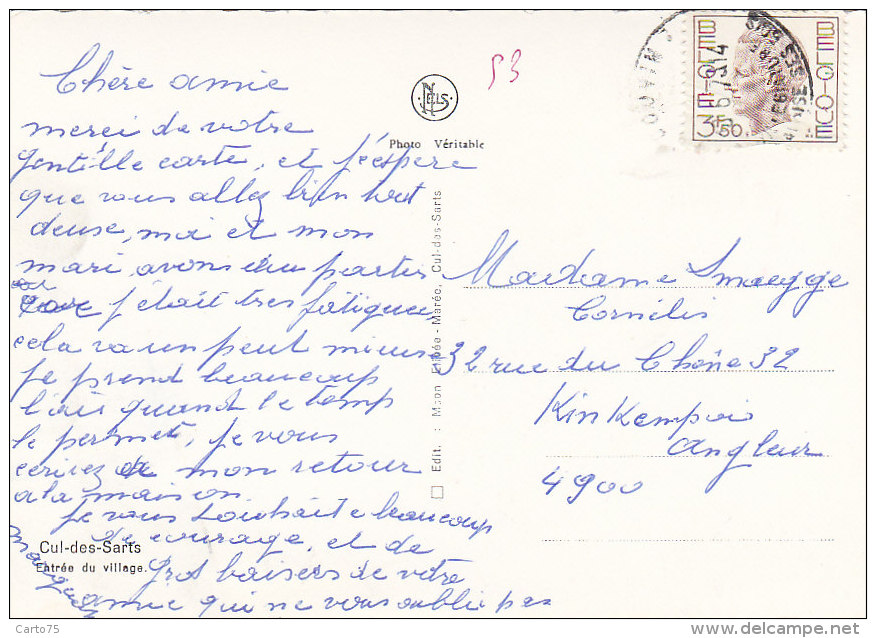 Chère amie
merci de votre
gentille carte, et j'espère
que vous allez bien tout
deuse, moi et mon
mari, avons du partir
car j'était tres fatiguee
cela va un peut mieus
je prend beaucoup
l'air quand le temp
le permet, je vous
ecrirez de mon retour
a la maison.
je vous souhaite beaucoup
de courage, et de
Gros baisers de votre
amie qui ne vous oublie pas
Cul-des-Sarts
Entrée du village.
53
NELS
Photo Véritable
Edit. : Mson Entrée - Marée, Cul-des-Sarts
BELGIE BELGIQUE
3F50
Madame Smaegge
Cornélis
32 rue du Chêne 32
Kinkempois
Angleur
4900
Carto75